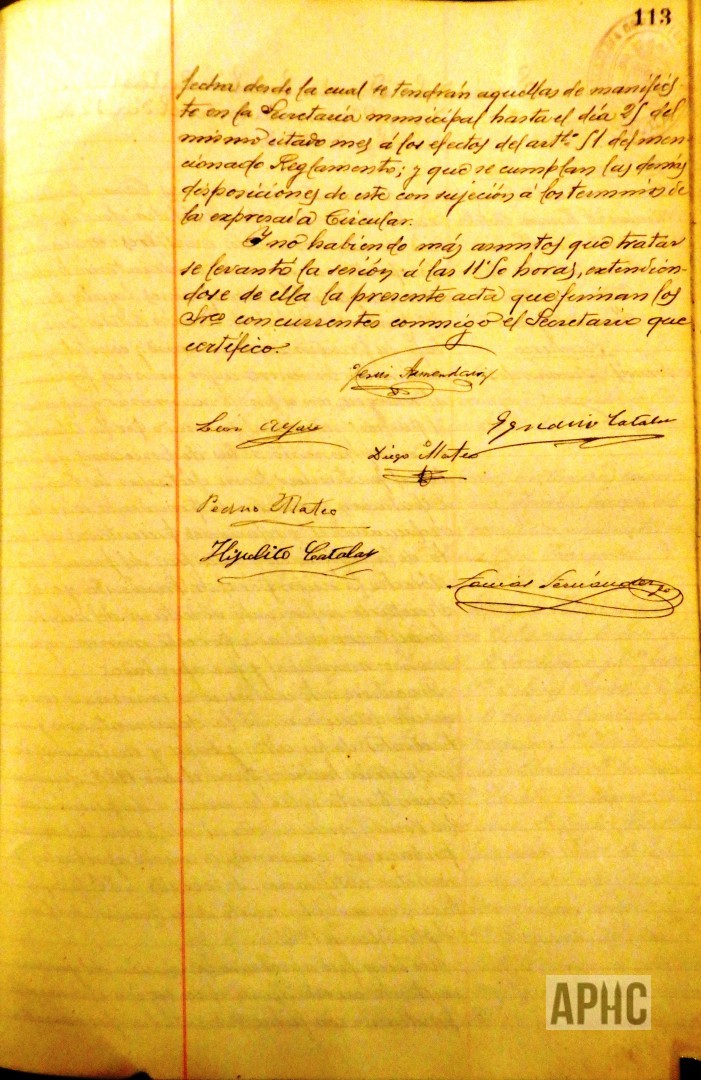 113
fecha desde la cual se tendrán aquellas de manifies
to en la Secretaría municipal hasta el día 25 del
mismo citado mes á los efectos del artlo 51 del men
cionado Reglamento; y que se cumplan las demás
disposiciones de este con sujeción á los terminos de
la expresada Circular.
Y no habiendo más asuntos que tratar
se levantó la sesión á las 11'50 horas, extendien-
dose de ella la presente acta que firman los
Sres concurrentes conmigo el Secretario que
certifico.
Jesús Armendariz
León
Ygnacio Catalan
Diego Mateo
Pedro Mateo
Hipolito Catalan
APHC